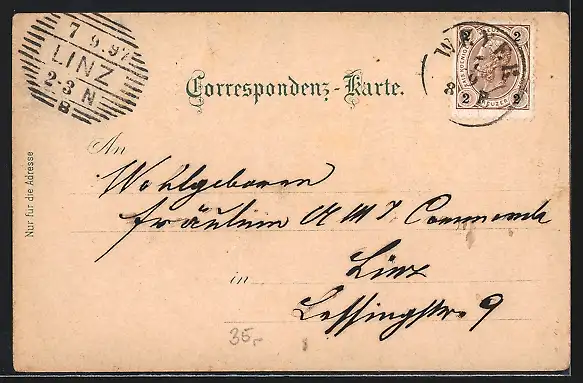 7 9.97
LINZ
2-3 N
B
2 2
2 2
KREUZER
WELS
8
Correspondenz-Karte.
An
Wohlgeboren
Fräulein
in Linz
Lessingstr. 9
Nur für die Adresse
35,-